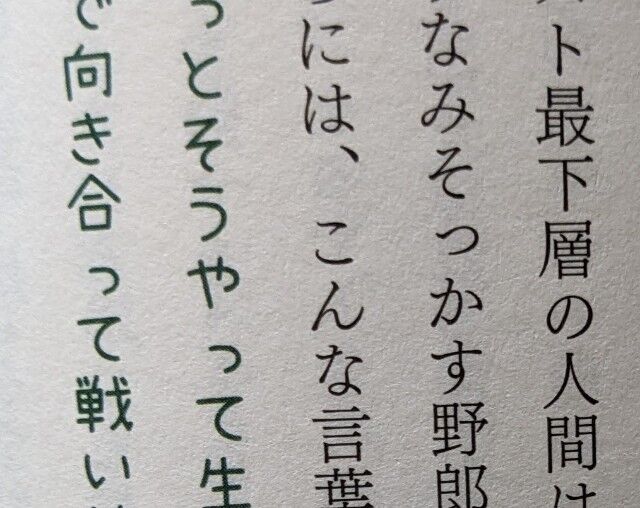 ト最下層の人間は
なみそっかす野郎
には、こんな言葉
っとそうやって生
で向き合って戦い